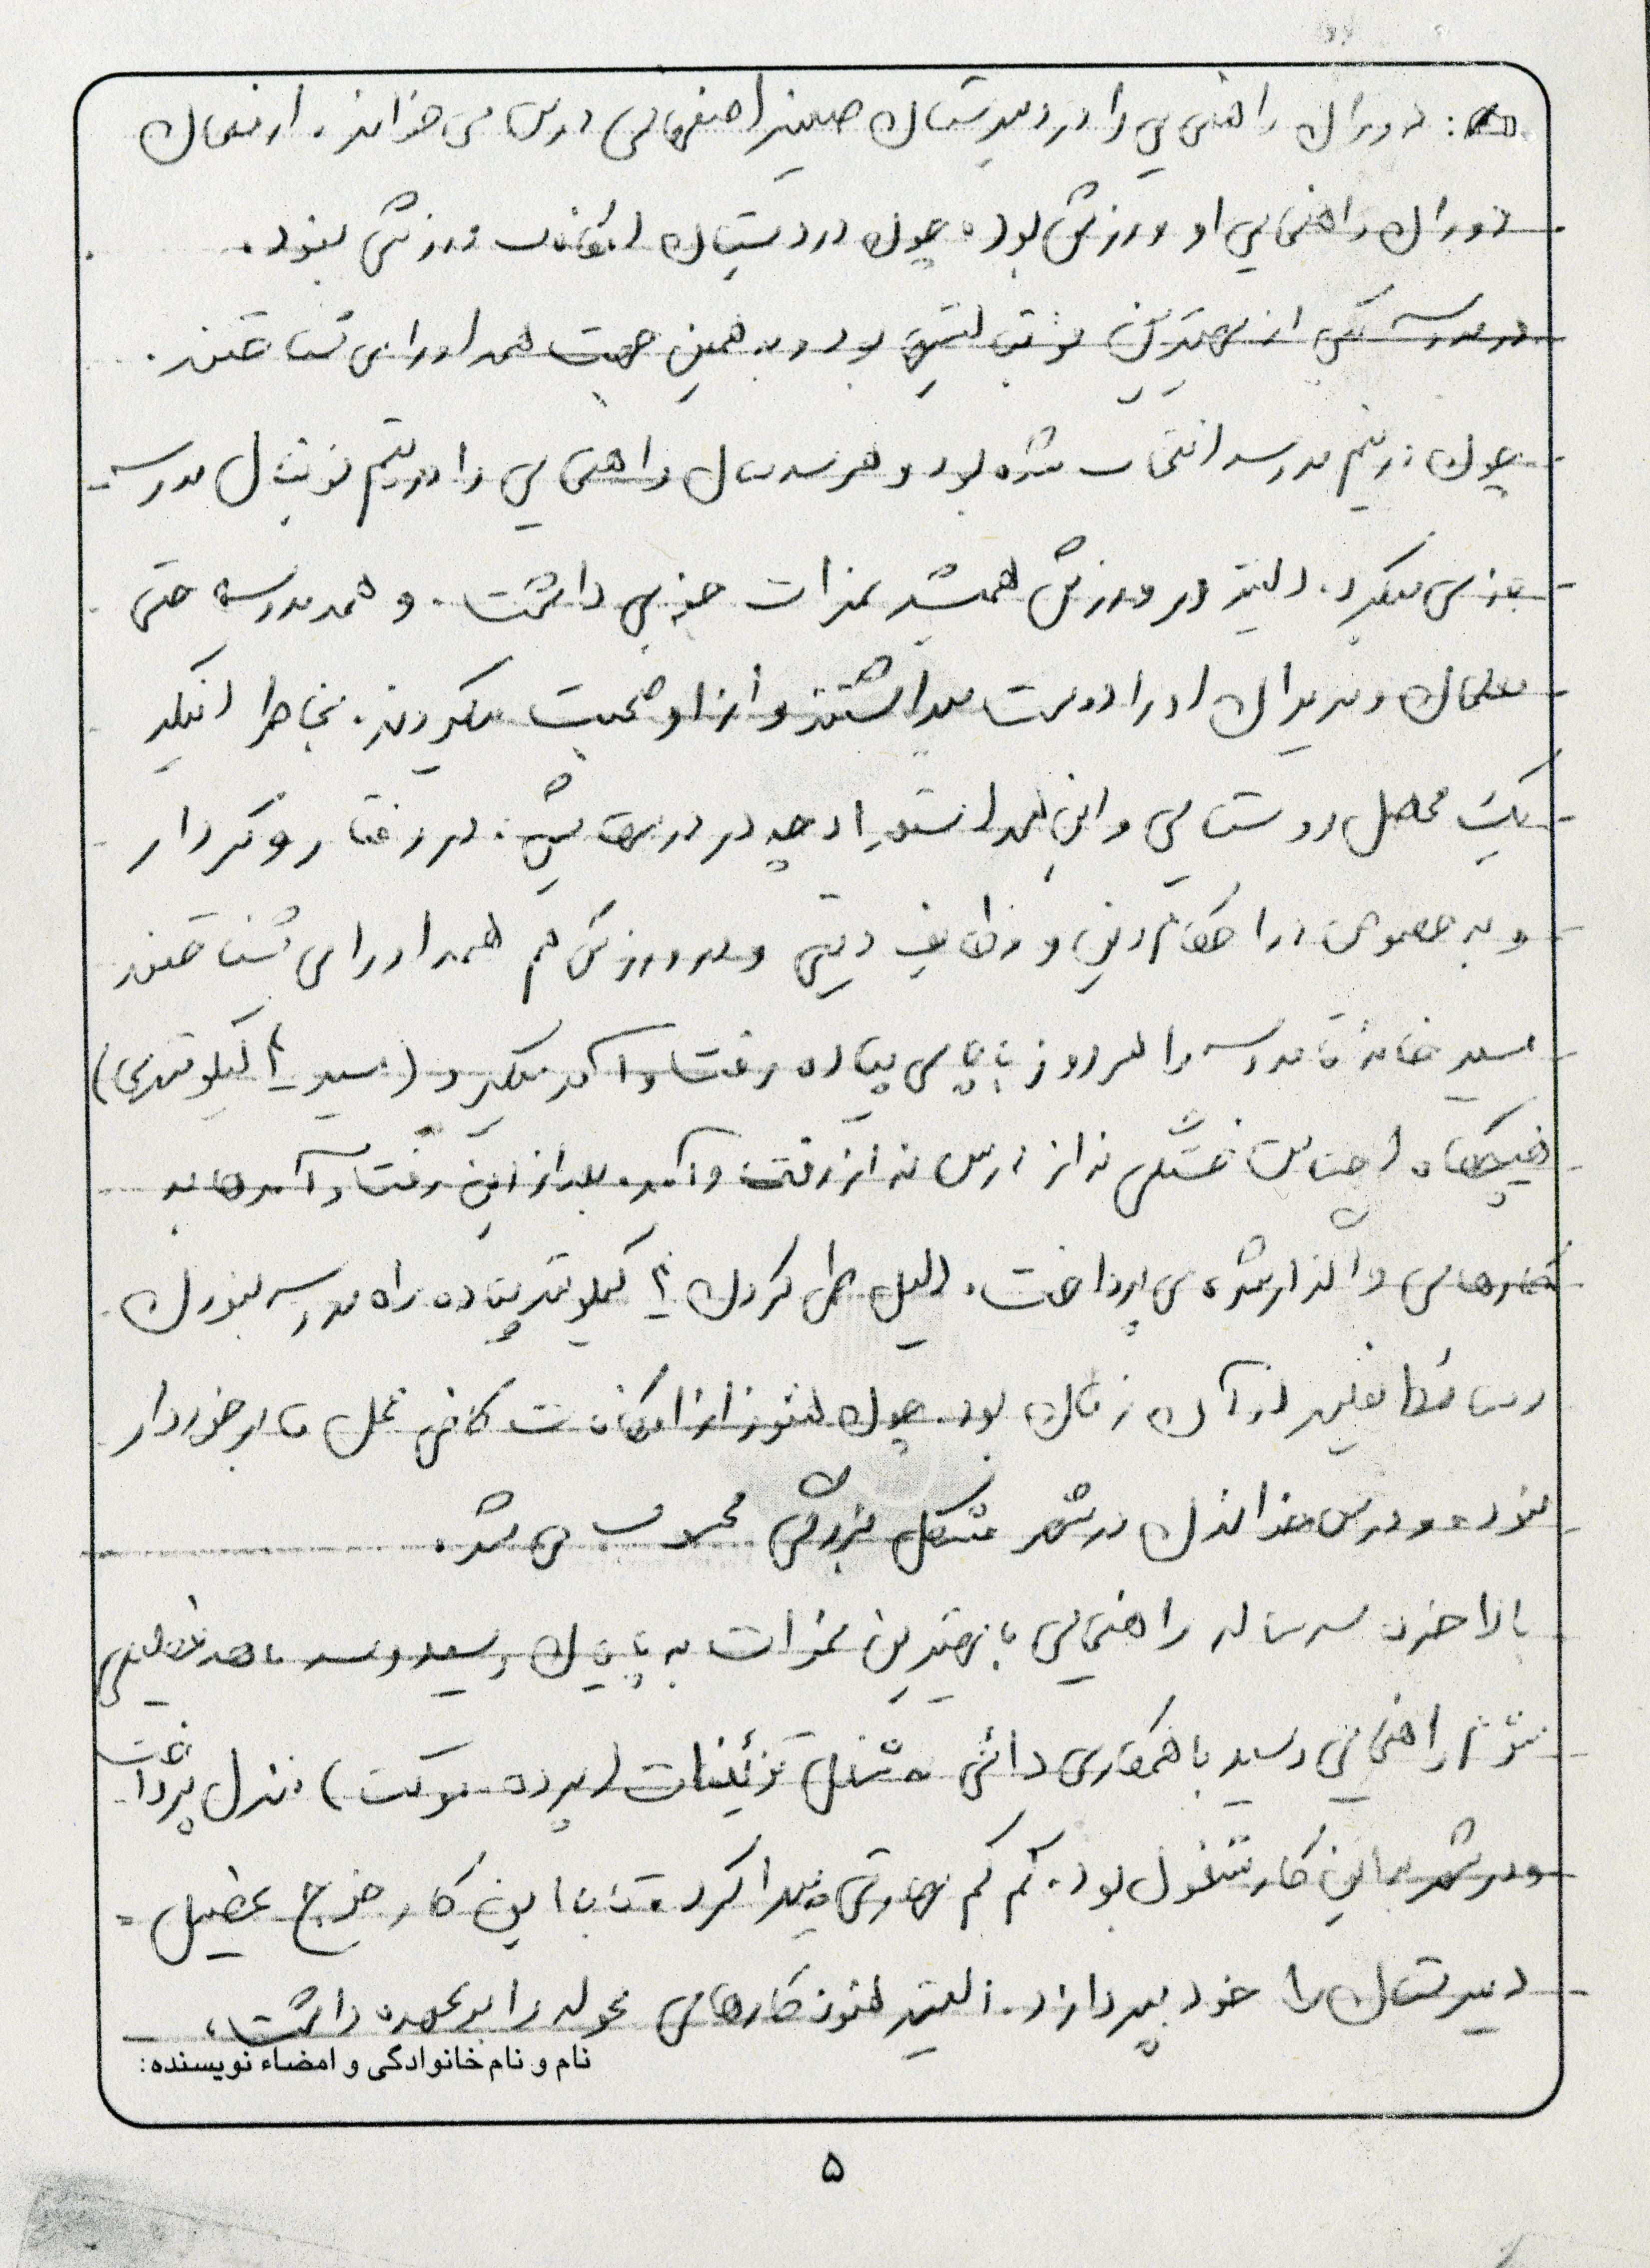 دوران راهنمایی را در دبیرستان صغیر اصفهانی درس می خواند. از فعال
دوران راهنمایی او ورزش بود. چون در دبستان امکانات ورزشی نبود.
در مدرسه یکی از بهترین فوتبالیستها بود و به همین جهت همه او را می شناختند.
چون در تیم مدرسه انتخاب شده بود و هر سه سال راهنمایی را در تیم فوتبال مدرسه
بازی میکرد. البته در ورزش همیشه نمرات خوبی داشت. و همه مدرسه حتی
معلمان و مدیران او را دوست میداشتند و از او صحبت میکردند. بخاطر اینکه
یک محصل روستایی و این همه استعداد چه در درسهایش. در رفتار و کردار
و به خصوص در احکام دین و وظایف دینی و در ورزش هم همه او را می شناختند
مسیر خانه تا مدرسه را هر روز با پای پیاده رفت و آمد میکرد (مسیر ۴ کیلومتری)
هیچگاه احساس خستگی نه از درس نه از رفت و آمد. بعد از این رفت و آمدها به
کارهای واگذار شده می پرداخت. دلیل طی کردن ۴ کیلومتر پیاده راه مدرسه نبودن
وسائط نقلیه در آن زمان بود. چون هنوز از امکانات کافی محل ما برخوردار
نبود. و درس خواندن در شهر مشکل بزرگی محسوب می شد.
بالاخره سه ساله راهنمایی با بهترین نمرات به پایان رسید و سه ماهه تعطیلی
سوم راهنمایی رسید با همکاری دائی به شغل تزئینات (پرده - موکت) منزل پرداخت
و در شهر به این کار مشغول بود. کم کم مهارتی پیدا کرد. تا با این کار خرج تحصیل
دبیرستان را خود بپردازد. البته هنوز کارهای محوله را برعهده داشت.
نام و نام خانوادگی و امضاء نویسنده:
۵